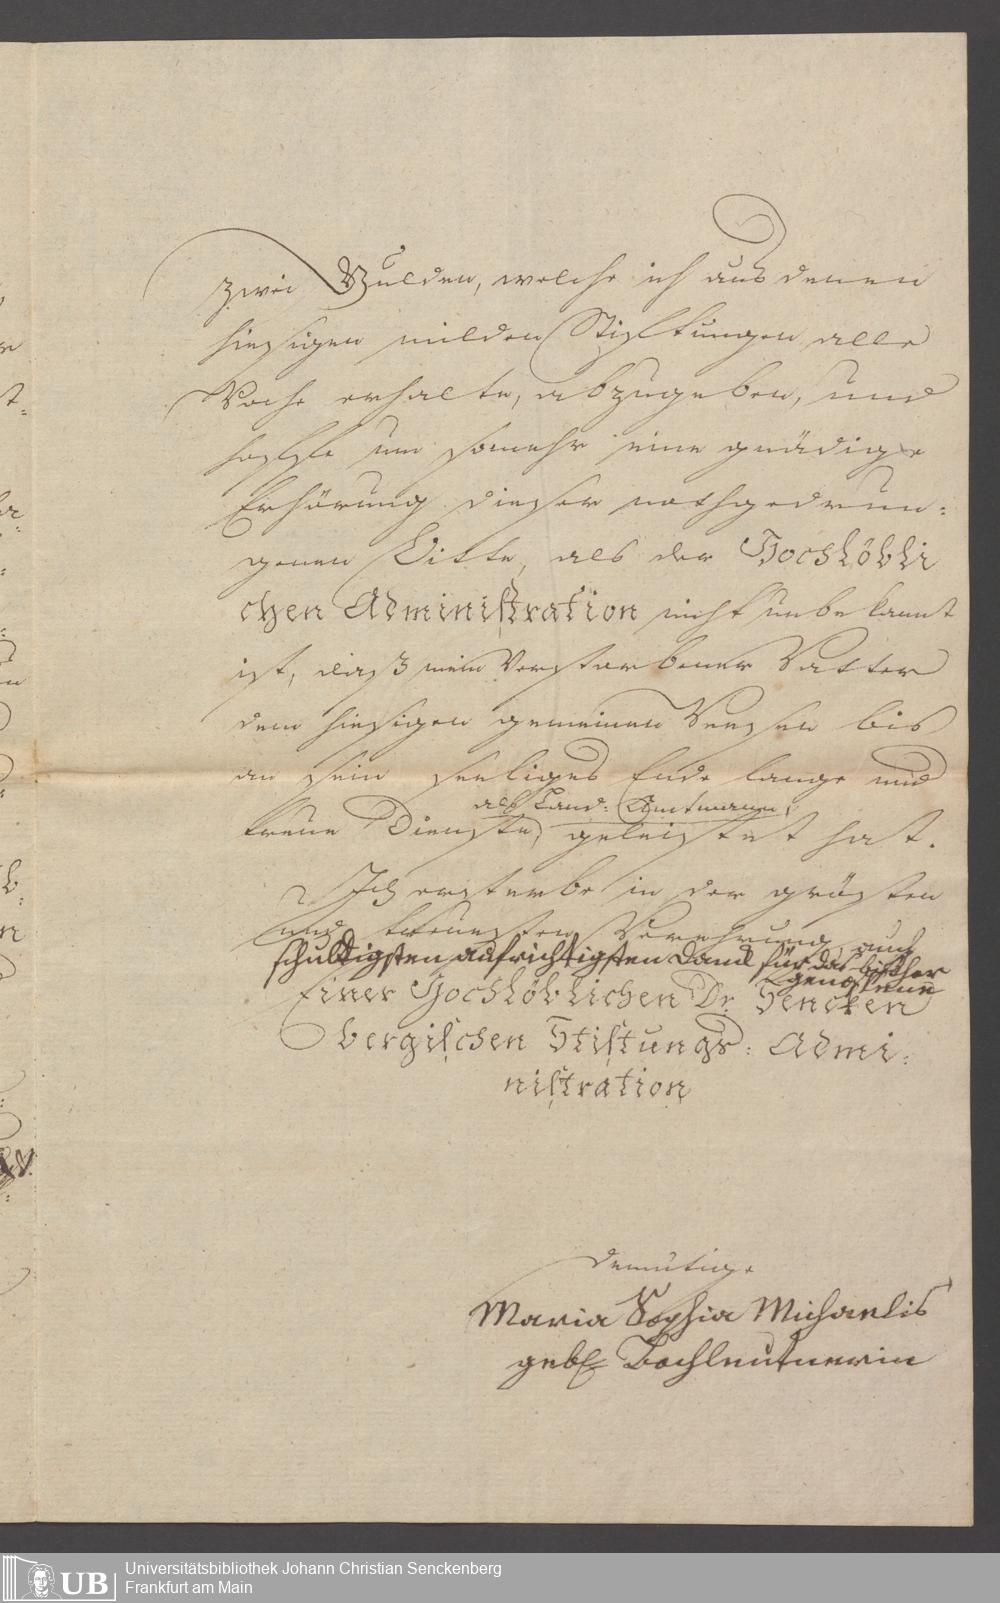 zwei Gulden, welche ich aus denen
hiesigen milden Stiftungen alle
Woche erhalte, abzugeben, und
hoffe um somehr eine gnädige
Erhörung dieser nothgedrun=
genen Bitte, als der Hochlöbli
chen Administration nicht unbekannt
ist, daß mein Verstorbener Vatter
dem hiesigen gemeinen Weesen bis
an sein seeliges Ende lange und
als Land=Amtmann,
treue Dienste, geleistet hat.
Ich ersterbe in der grösten
und treuesten Verehrung, auch
schuldigsten aufrichtigsten Danck für das bißher
genossene
Einer Hochlöblichen Dr. Sencken
bergischen Stiftungs=Admi=
nistration
demütige
Maria Sophia Michaelis
geb. Bachleutnerin
Universitätsbibliothek Johann Christian Senckenberg
Frankfurt am Main
UB